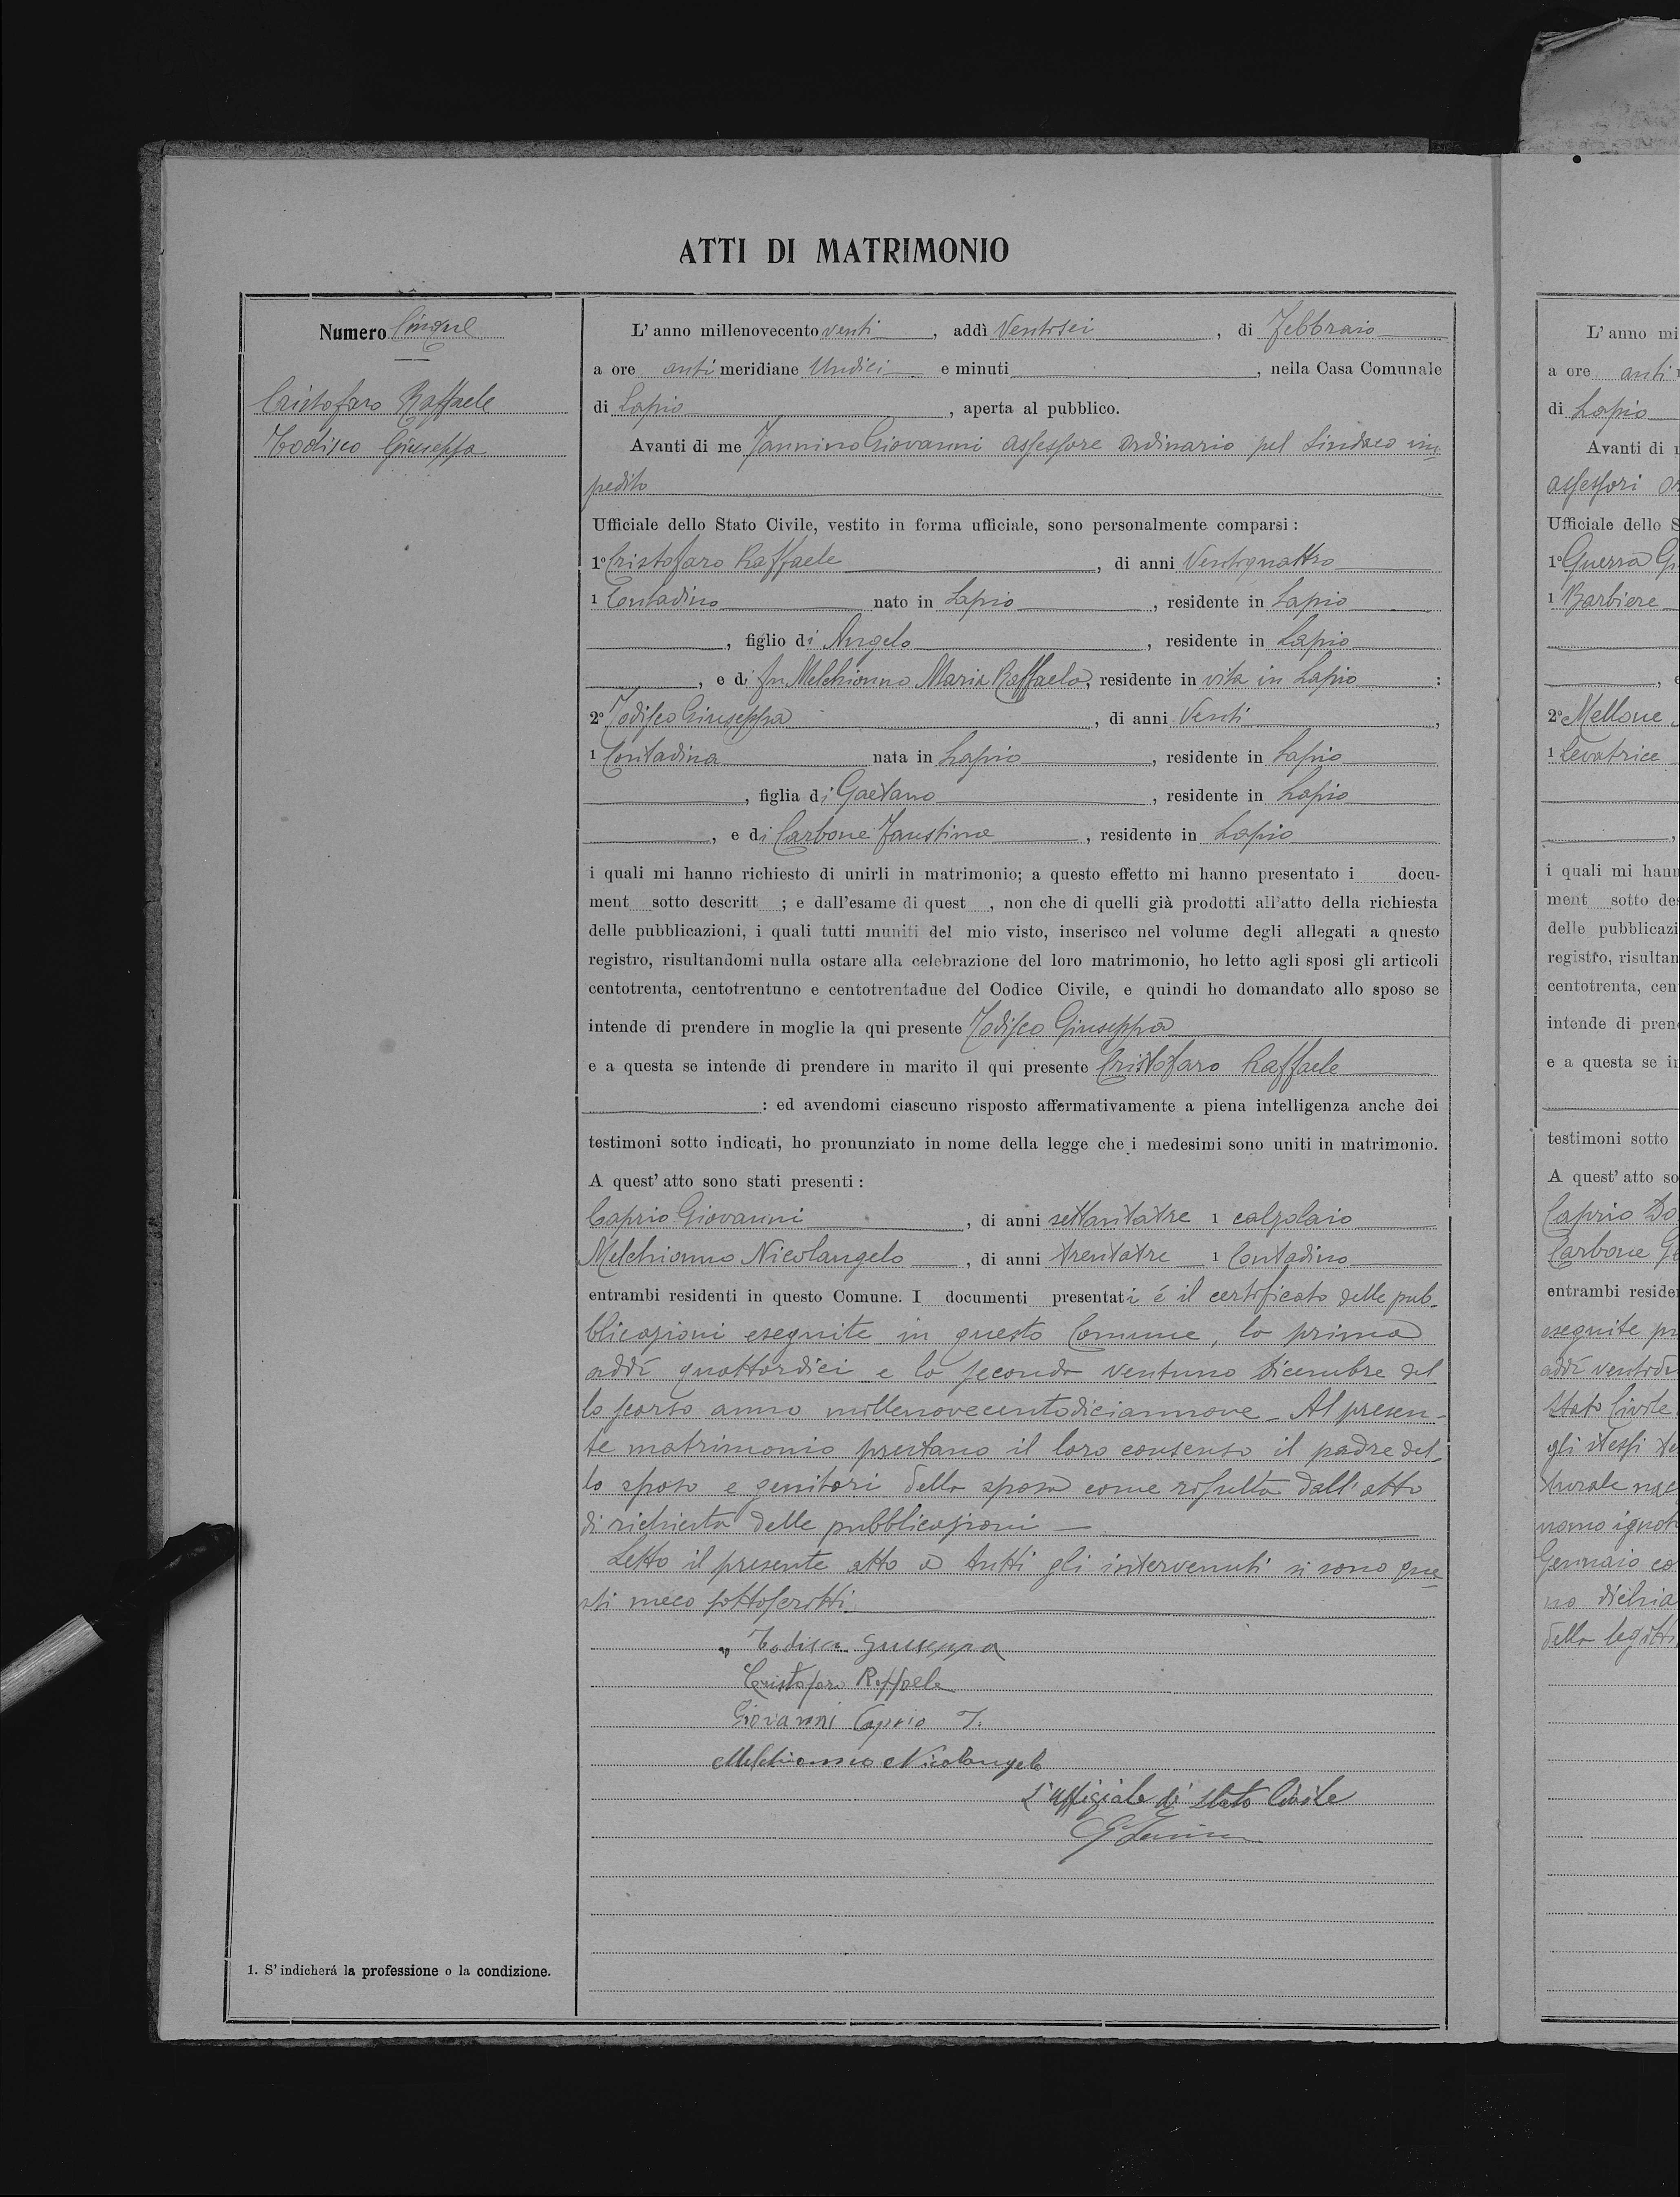 ATTI DI MATRIMONIO
Numero Cinque
Cristofaro Raffaele
Todisco Giuseppa
L'anno millenovecento venti, addì Ventisei, di Febbraio
a ore antimeridiane Undici e minuti, nella Casa Comunale
di Lapio, aperta al pubblico.
Avanti di me Iannino Giovanni assessore ordinario pel Sindaco im-
pedito
Ufficiale dello Stato Civile, vestito in forma ufficiale, sono personalmente comparsi:
1° Cristofaro Raffaele, di anni Ventiquattro
1 Contadino nato in Lapio, residente in Lapio
, figlio di Angelo, residente in Lapio
, e di fu Melchionno Maria Raffaela, residente in vita in Lapio:
2° Todisco Giuseppa, di anni Venti,
1 Contadina nata in Lapio, residente in Lapio
, figlia di Gaetano, residente in Lapio
, e di Carbone Faustina, residente in Lapio
i quali mi hanno richiesto di unirli in matrimonio; a questo effetto mi hanno presentato i docu-
ment sotto descritt ; e dall'esame di quest , non che di quelli già prodotti all'atto della richiesta
delle pubblicazioni, i quali tutti muniti del mio visto, inserisco nel volume degli allegati a questo
registro, risultandomi nulla ostare alla celebrazione del loro matrimonio, ho letto agli sposi gli articoli
centotrenta, centotrentuno e centotrentadue del Codice Civile, e quindi ho domandato allo sposo se
intende di prendere in moglie la qui presente Todisco Giuseppa
e a questa se intende di prendere in marito il qui presente Cristofaro Raffaele
: ed avendomi ciascuno risposto affermativamente a piena intelligenza anche dei
testimoni sotto indicati, ho pronunziato in nome della legge che i medesimi sono uniti in matrimonio.
A quest'atto sono stati presenti:
Caprio Giovanni, di anni settantatre 1 calzolaio
Melchionno Nicolangelo, di anni trentatre 1 Contadino
entrambi residenti in questo Comune. I documenti presentati é il certificato delle pub-
blicazioni eseguite in questo Comune, la prima
addì quattordici e la seconda ventuno dicembre del
lo scorso anno millenovecentodiciannove - Al presen-
te matrimonio prestano il loro consenso il padre del-
lo sposo e genitori della sposa come risulta dall'atto
di richiesta delle pubblicazioni -
Letto il presente atto a tutti gli intervenuti si sono que-
sti meco sottoscritti.
Todisco Giuseppa
Cristofaro Raffaele
Giovanni Caprio T.
Melchionno Nicolangelo
L'uffiziale di stato Civile
1. S'indicherá la professione o la condizione.
L'anno mi
a ore anti
di Lapio
Avanti di
assessori
Ufficiale dello S
1° Guerra
1 Barbiere
2° Mellone
1 Levatrice
i quali mi hann
ment sotto des
delle pubblicazi
registro, risultan
centotrenta, cen
intende di pren
e a questa se in
testimoni sotto
A quest'atto so
Caprio Do
Carbone
entrambi reside
eseguite
addì
Stato Civile
gli stessi
nomo ignot
Gennaio
no dichia
della